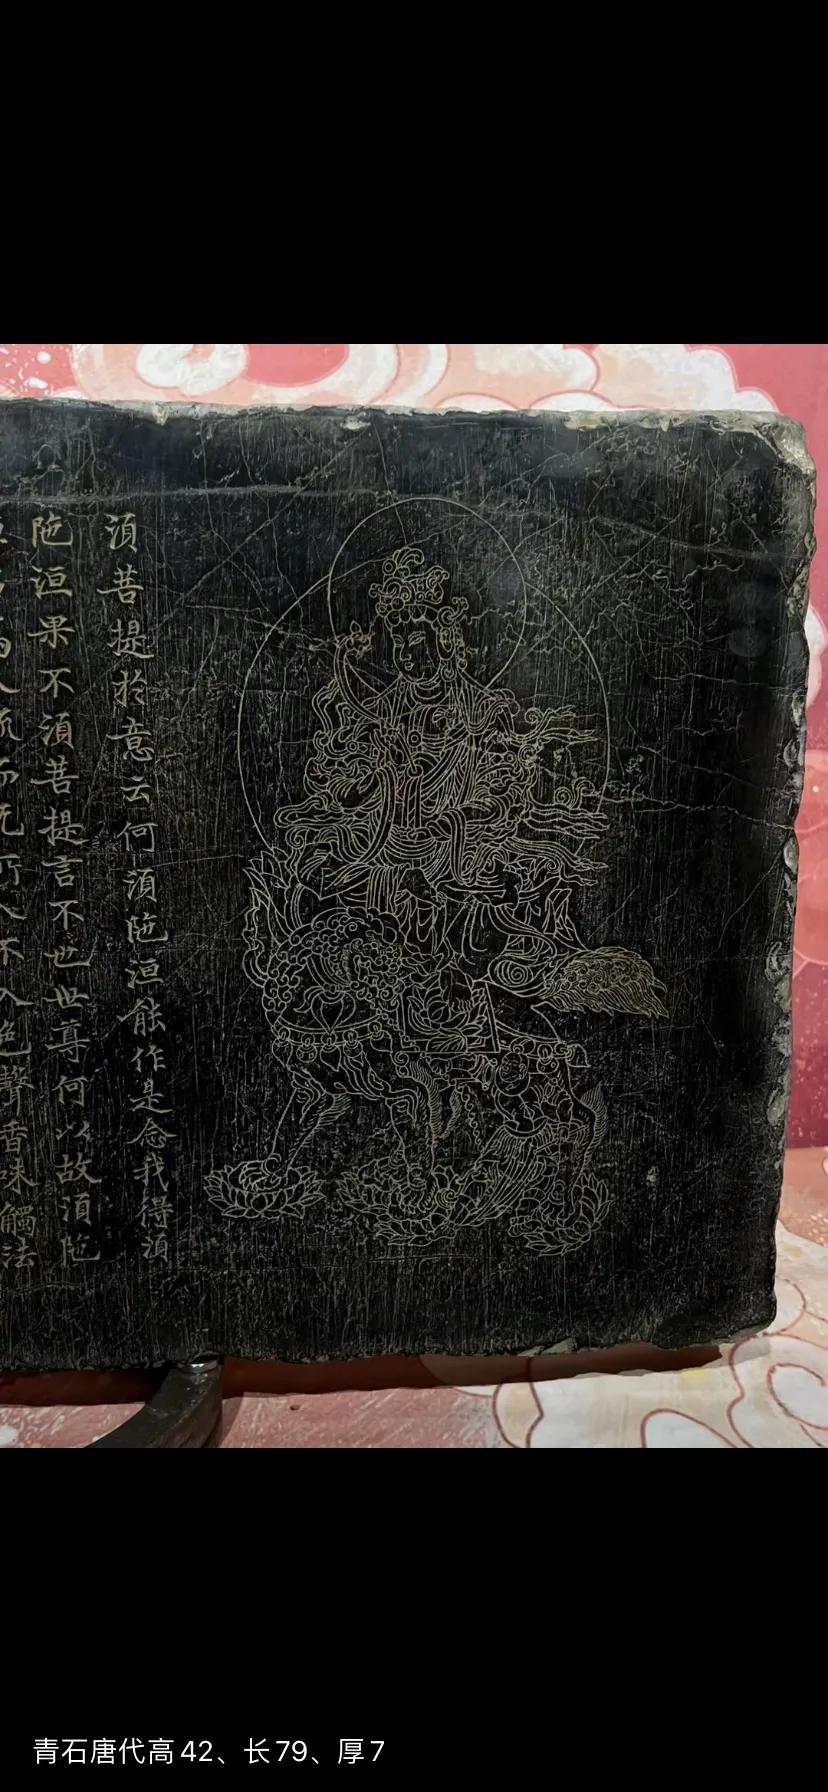 須菩提扵意云何須陁洹能作是念我得須
陁洹果不須菩提言不世世尊何以故須陁
入流而无所入不入色聲香味觸法
青石唐代高42、长79、厚7